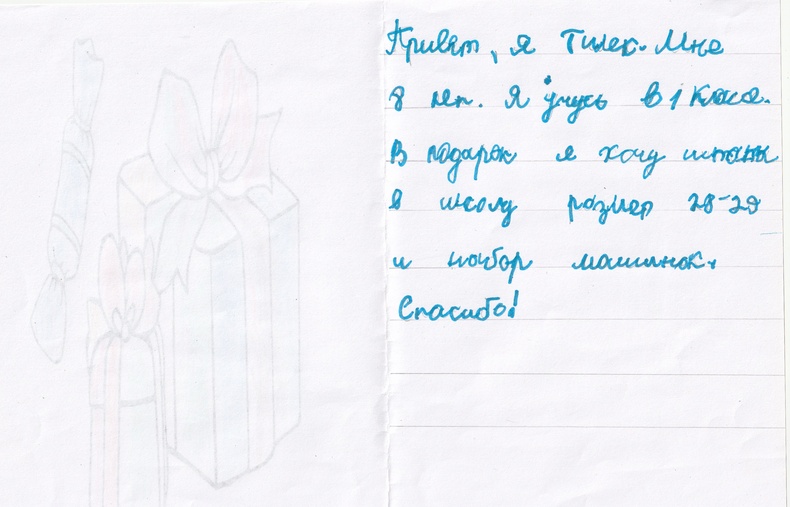 Привят, я Тилек. Мне
8 лет. Я учусь в 1 класе.
В подарок я хочу штаны
в школу розмер 28-29
и набор машинок.
Спасибо!